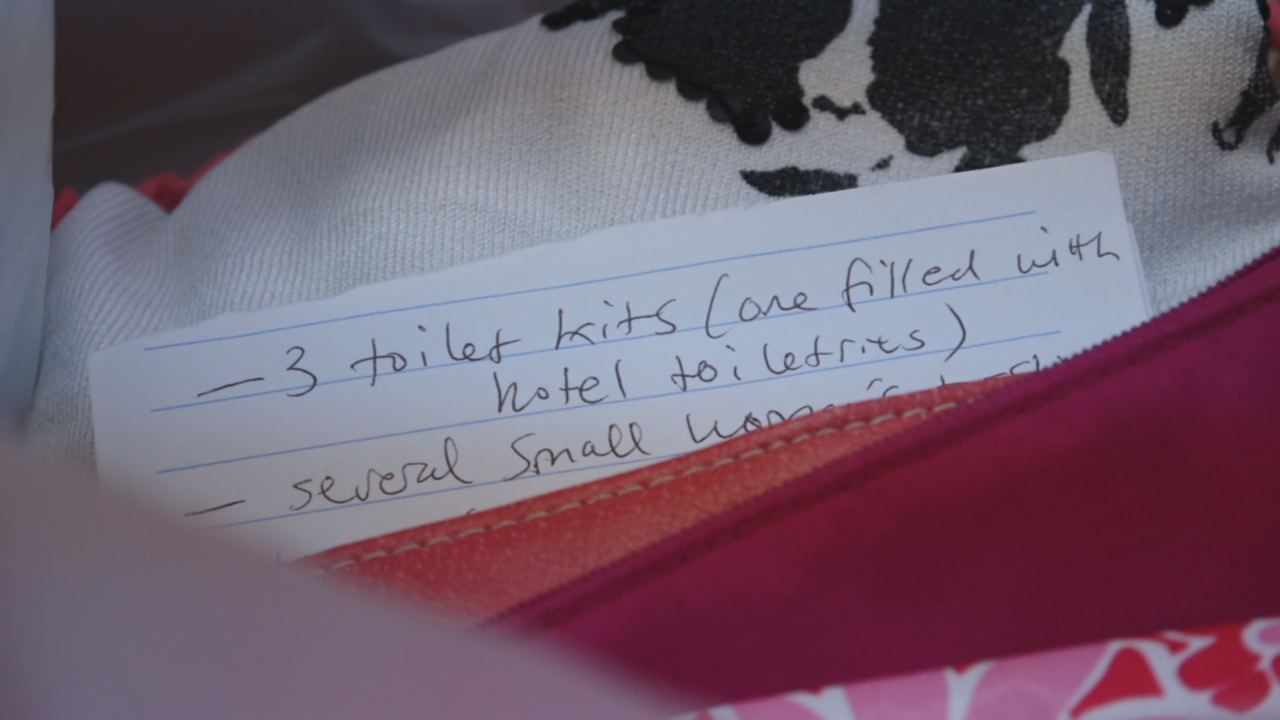 — 3 toilet kits (one filled with
hotel toiletries)
— several small